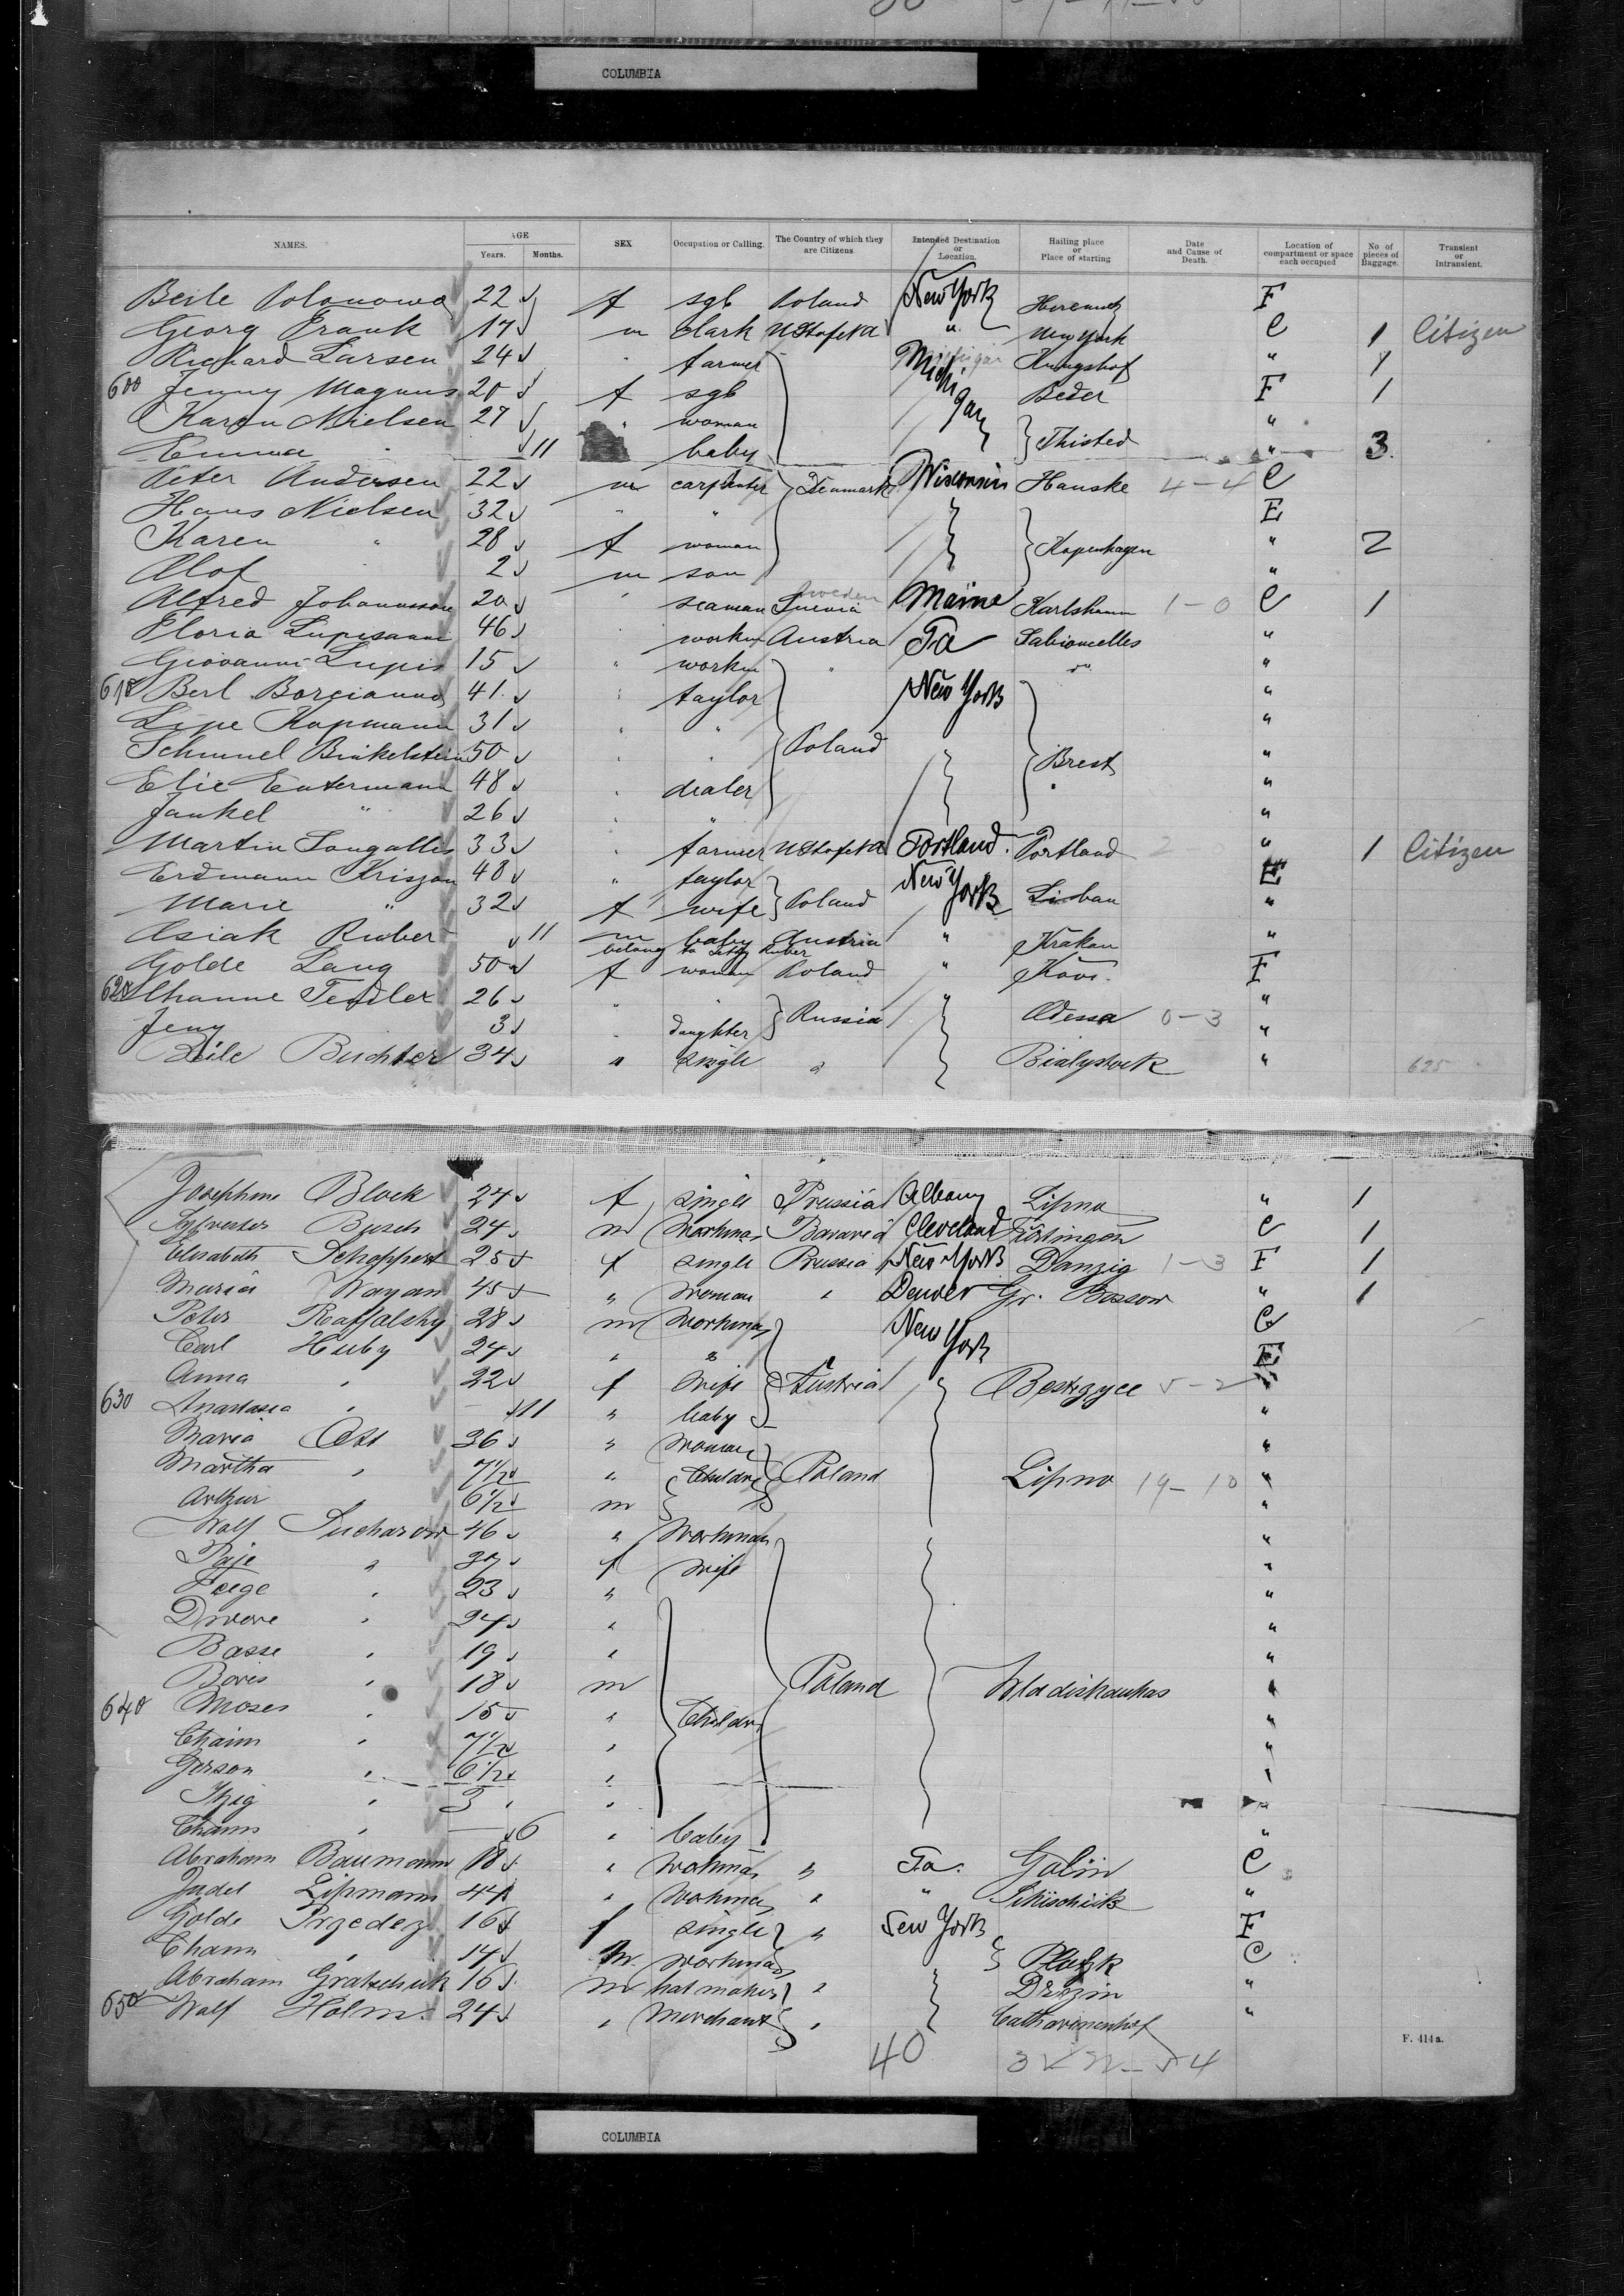 COLUMBIA
NAMES. AGE Years. Months. SEX Occupation or Calling. The Country of which they are Citizens. Intended Destination or Location. Hailing place or Place of starting Date and Cause of Death. Location of compartment or space each occupied No of pieces of Baggage. Transient or Intransient.
Beile Polonowa 22 f sgl Poland New York F
Georg Frank 17 m clark U St of NA " New York C 1 Citizen
Richard Larsen 24 " farmer Michigan Kungshof " 1
600 Jenny Magnus 20 f sgl Beder F 1
Karen Nielsen 27 " woman "
Emma " 11 baby Thisted " 3
Peter Andersen 22 m carpenter Denmark Wisconsin Hanske 4-4 C
Hans Nielsen 32 " " E
Karen " 28 f woman Kopenhagen " 2
Olof 2 m son "
Alfred Johannsson 20 " seaman Suevia Sweden Maine Karlshamn 1-0 C 1
Floria 46 " workm Austria Pa Sabioncelles "
Giovanni Lupis 15 " workm " " "
610 Berl 41 " taylor New York "
Lipe Kopmann 31 " " "
Schmuel Binkelstein 50 " " Poland Brest "
Elie Entermann 48 " dealer "
Jankel " 26 " " "
Martin 33 " farmer U St of NA Portland Portland 2 " 1 Citizen
Erdmann Kriszan 48 " taylor New York E
Marie " 32 f wife Poland Libau "
Asiak Ruber 11 m baby Austria " Krakau "
belong to Ruber
Golde Lang 50 f woman Poland " F
620 Channe Tendler 26 " " " "
Jeny 3 " daughter Russia Odessa 0-3 "
Beile Buchter 34 " single " Bialystock " 625
Josephine Block 24 f single Prussia Albany Lipno " 1
Sylvester Busch 24 m Workman Bavaria Cleveland C 1
Elisabeth Schoppert 25 f single Prussia New York Danzig 1-3 F 1
Maria Wayan 45 " Woman " Denver Gr. Bossow " 1
Peter Raffalsky 28 m Workman New York C
Carl Huby 24 " " E
Anna " 22 f Wife Austria 5-2 "
630 Anastasia " 11 " baby "
Maria Ott 36 " Woman "
Martha " 7 1/2 " Childr Poland Lipno 19-10 "
Arthur 6 1/2 m "
Wolf Sucharow 46 " Workman "
" f Wife "
Feige " 23 " "
Dwore " 24 " "
Basse " 19 " "
Bores " 18 m Poland Wladiskaukas "
640 Moses " 15 " Childr "
Chaim " 7 1/2 " "
Gerson " 6 1/2 " "
Itzig " 3 " "
Chaim " 6 " baby "
Abraham Baumann 18 " Wokman " Pa. Golin C
Judel Lipmann 44 " Wokman " " "
Golde Przedez 16 f single " New York F
Chaim " 14 m workman Plotzk C
Abraham Gratschuk 16 m hat maker " "
650 Wolf Holm. 24 " Merchant " Catharinenhof "
40
F. 414 a.
COLUMBIA